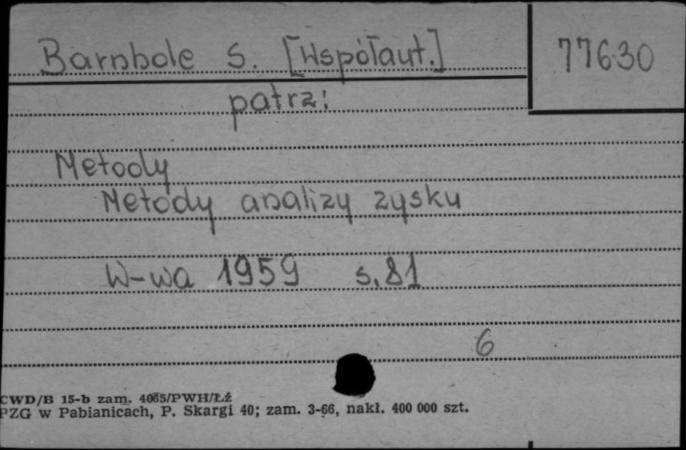 Barnhole S. [Współaut.]
77630
patrz:
Metody
Metody analizy zysku
W-wa 1959 s. 81
6
CWD/B 15-b zam. 4065/PWH/Łź
PZG w Pabianicach, P. Skargi 40; zam. 3-66, nakł. 400 000 szt.